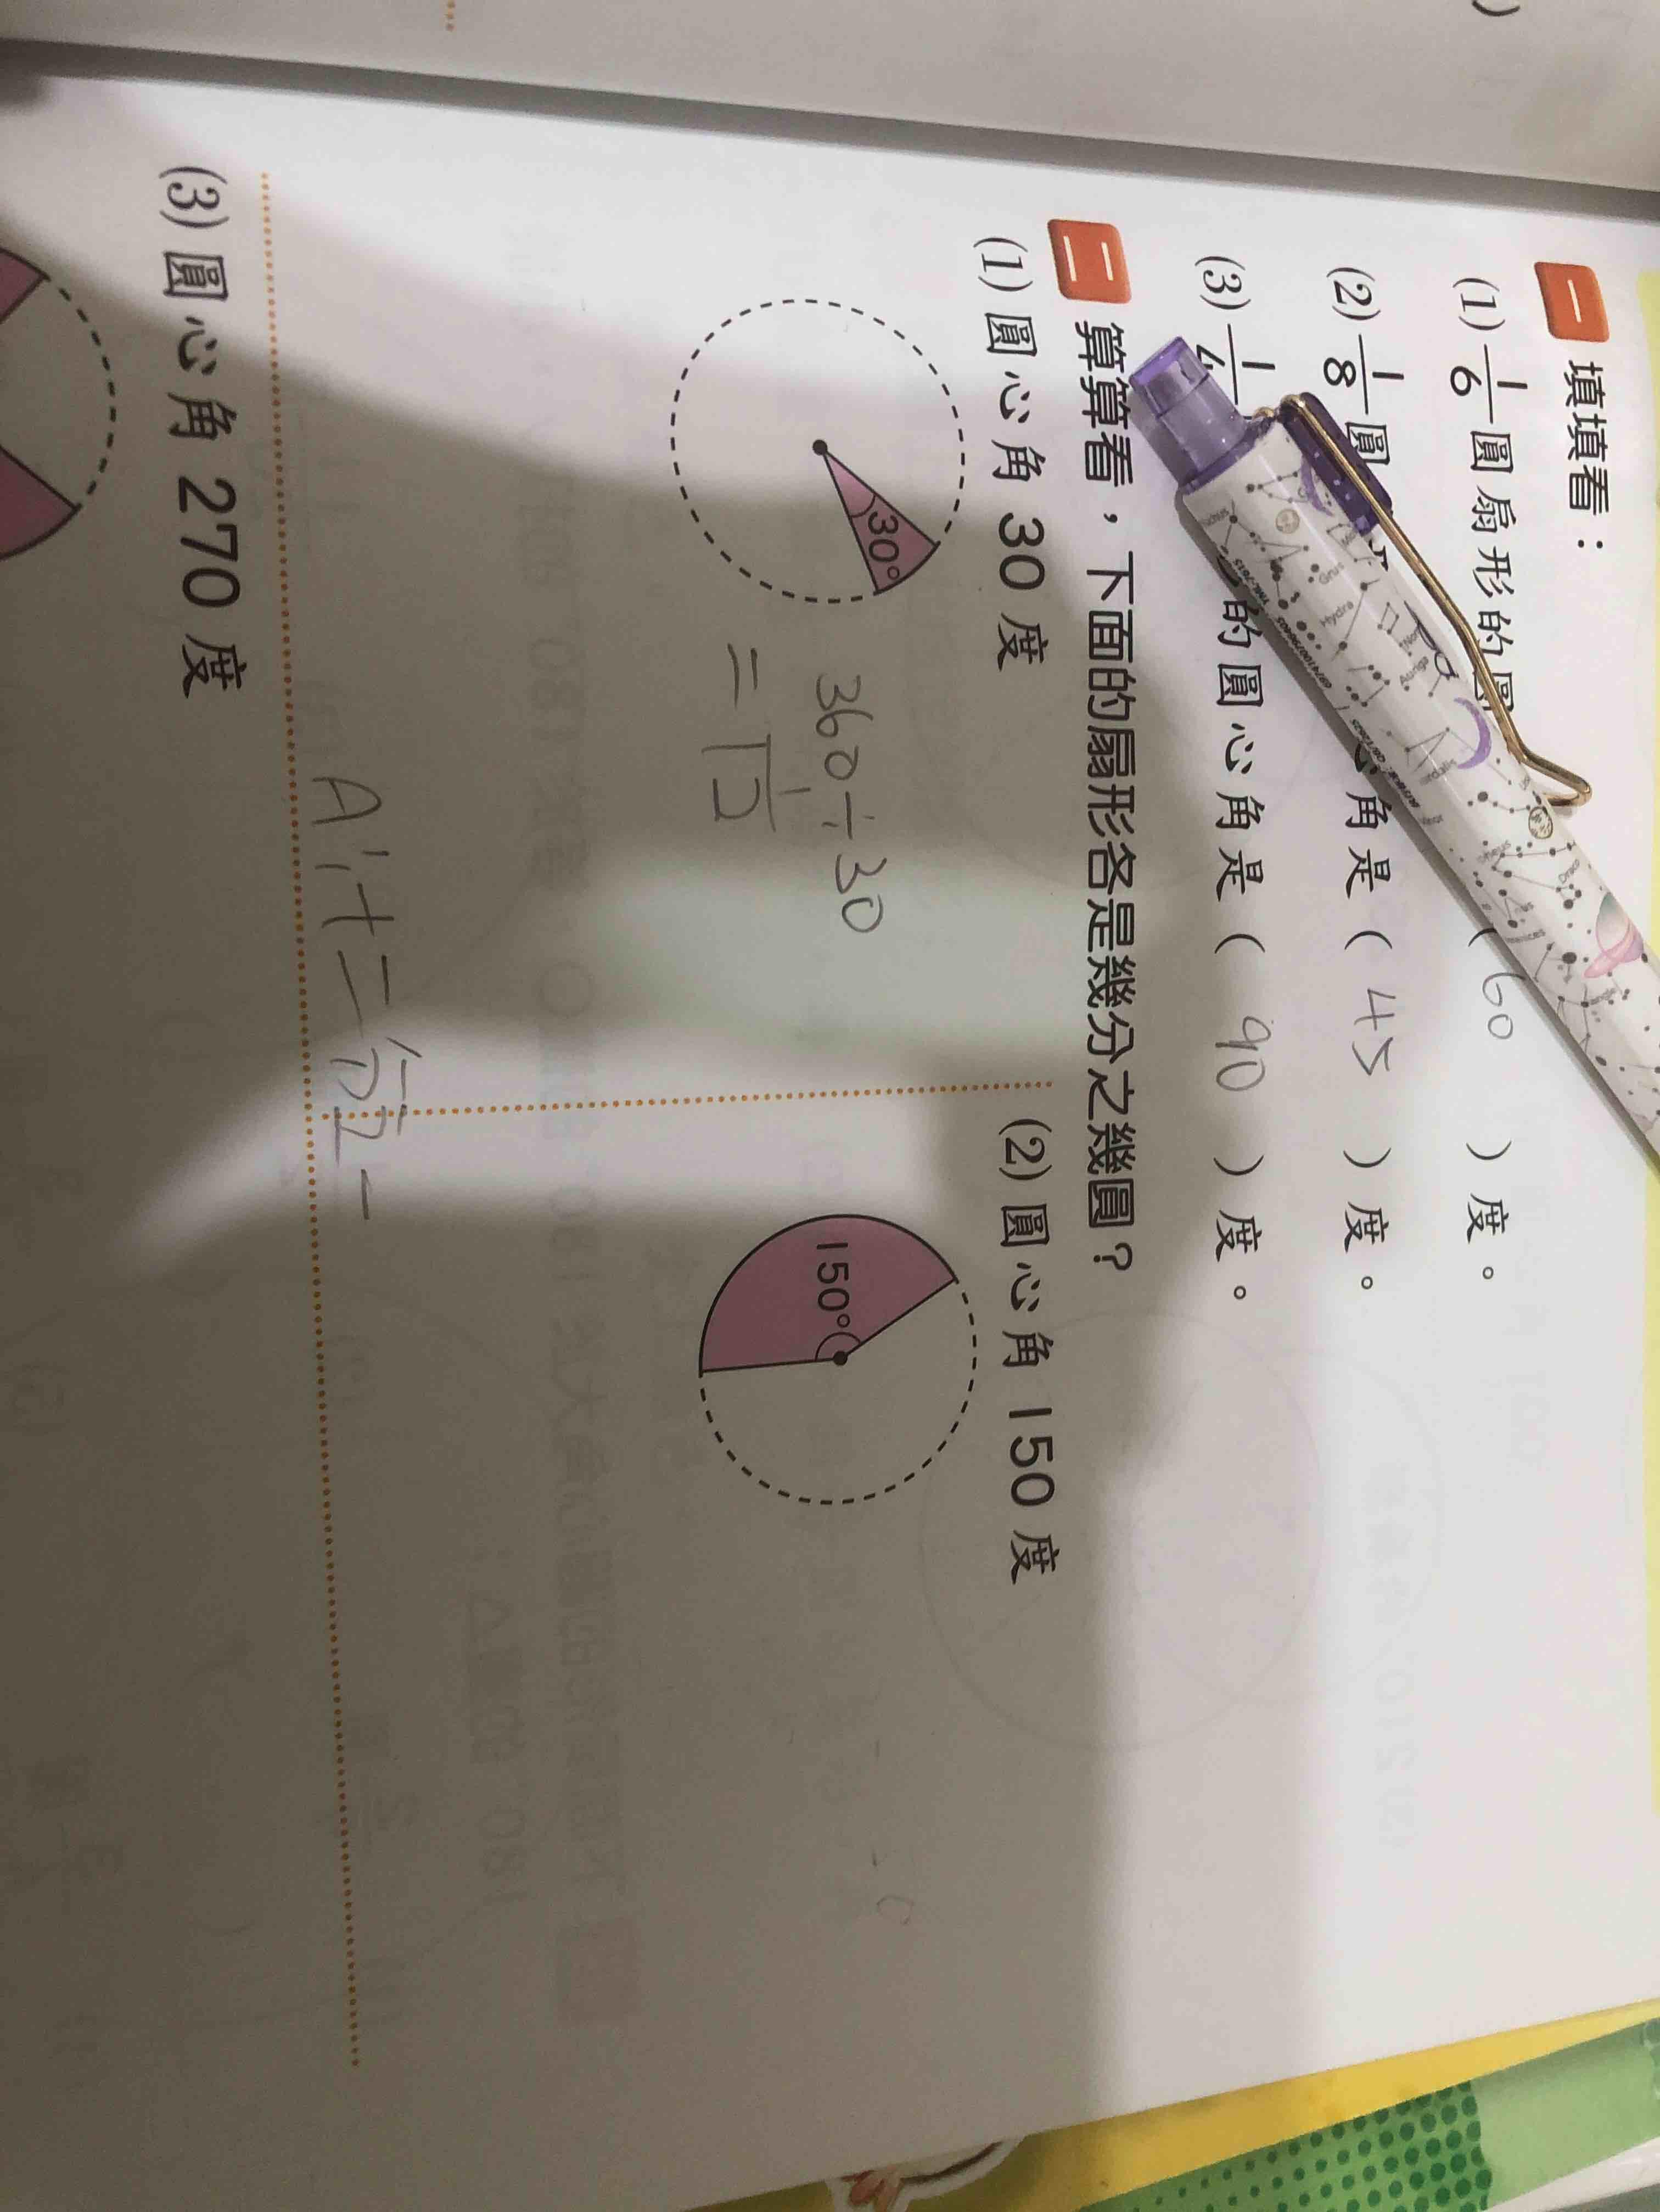 一 填填看：
(1) 1/6 圓扇形的圓 ( 60 ) 度。
(2) 1/8 圓 心角是 ( 45 ) 度。
(3) 1/4 的圓心角是 ( 90 ) 度。
二 算算看，下面的扇形各是幾分之幾圓？
(1) 圓心角 30 度
30°
360÷30
A:十二分之一
(2) 圓心角 150 度
150°
(3) 圓心角 270 度
Grus
Hydra
Auriga